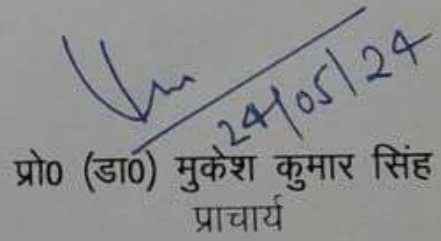 24/05/24
प्रो0 (डा0) मुकेश कुमार सिंह
प्राचार्य